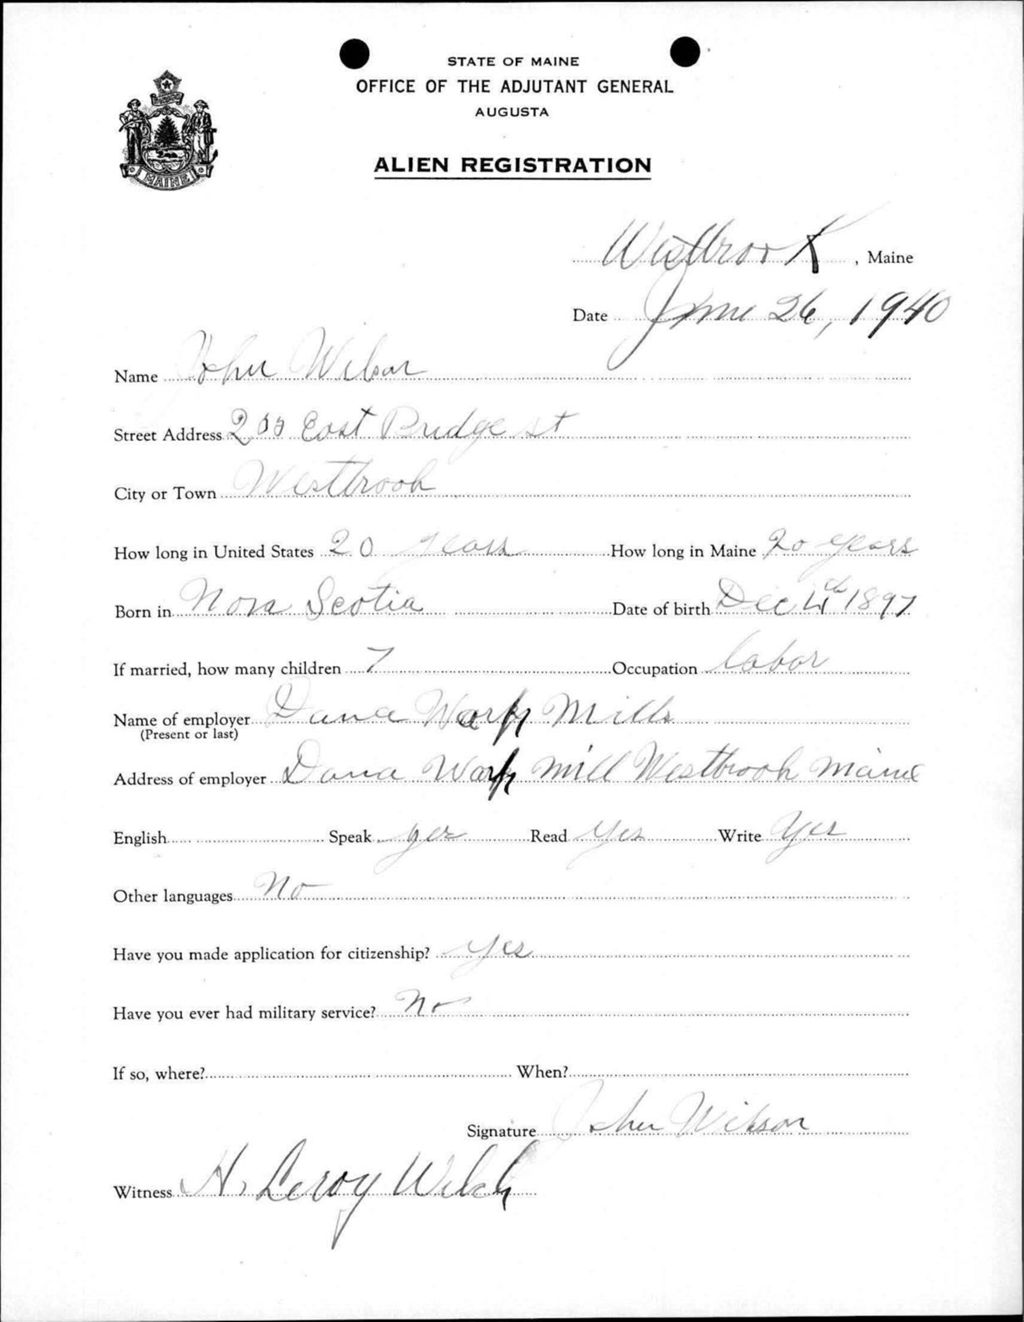 STATE OF MAINE
OFFICE OF THE ADJUTANT GENERAL
AUGUSTA
ALIEN REGISTRATION
MAINE
Westbrook, Maine
Date June 26, 1940
Name John Wilson
Street Address East Bridge st
City or Town Westbrook
How long in United States 20 years How long in Maine 20 years
Born in Nova Scotia Date of birth Dec 4th 1897
If married, how many children 7 Occupation labor
Name of employer Dana Warp Mills
(Present or last)
Address of employer Dana Warp mill Westbrook Maine
English Speak yes Read yes Write Yes
Other languages No
Have you made application for citizenship? yes
Have you ever had military service? No
If so, where? When?
Signature John Wilson
Witness H. Leroy Welch